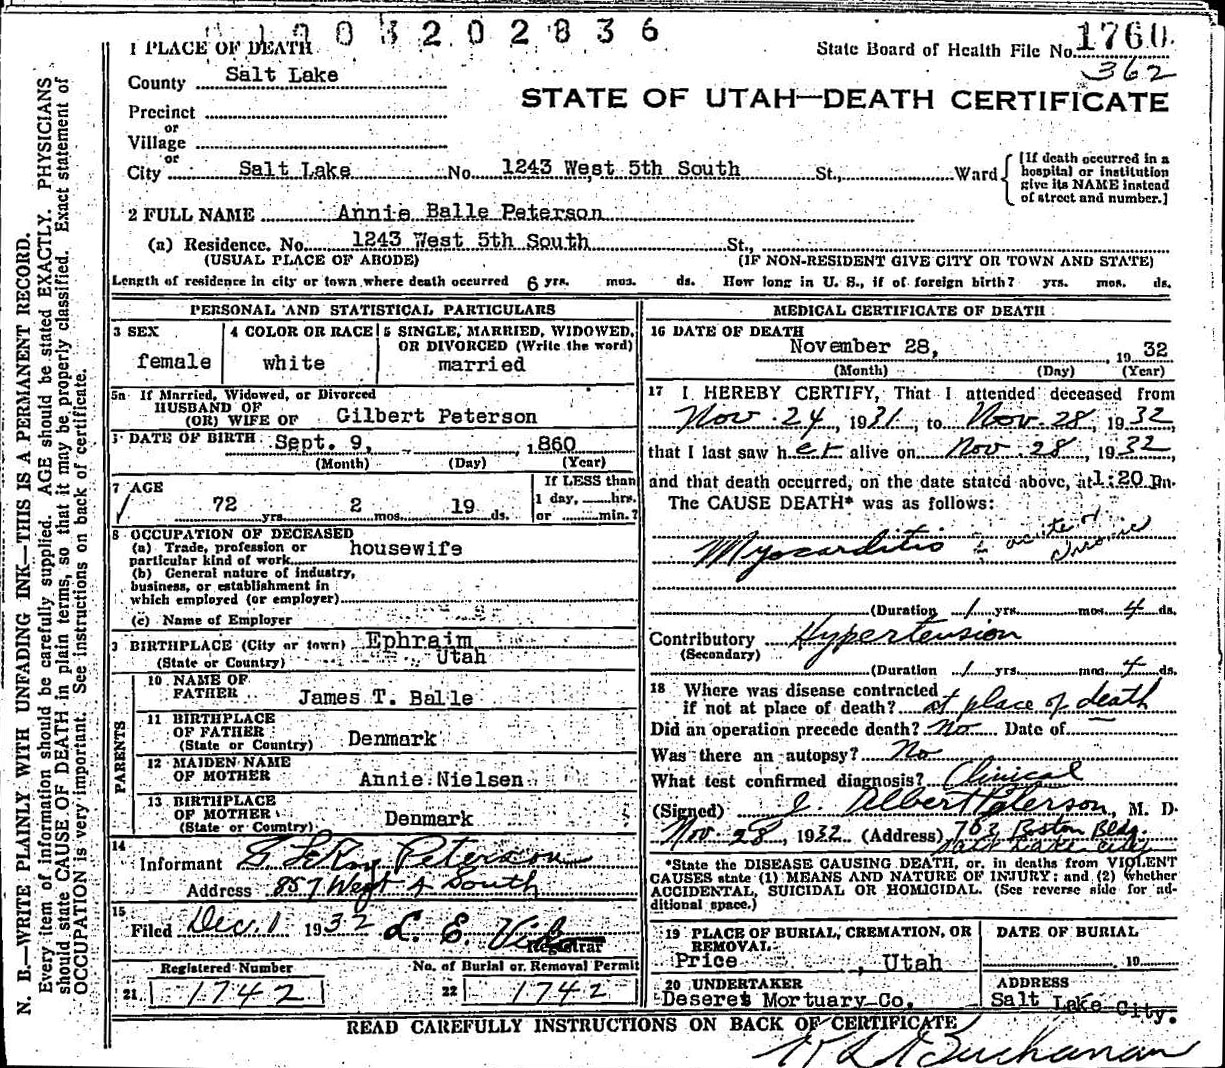 1003202836
State Board of Health File No. 1760.
362
1 PLACE OF DEATH
County Salt Lake
STATE OF UTAH—DEATH CERTIFICATE
Precinct
or
Village
or
City Salt Lake No. 1243 West 5th South St., Ward
[If death occurred in a
hospital or institution
give its NAME instead
of street and number.]
2 FULL NAME Annie Balle Peterson
(a) Residence. No. 1243 West 5th South St.,
(USUAL PLACE OF ABODE) (IF NON-RESIDENT GIVE CITY OR TOWN AND STATE)
Length of residence in city or town where death occurred 6 yrs. mos. ds. How long in U. S., if of foreign birth? yrs. mos. ds.
PERSONAL AND STATISTICAL PARTICULARS
3 SEX
female
4 COLOR OR RACE
white
5 SINGLE, MARRIED, WIDOWED,
OR DIVORCED (Write the word)
married
5a If Married, Widowed, or Divorced
HUSBAND OF
(OR) WIFE OF Gilbert Peterson
DATE OF BIRTH Sept. 9, 1860
(Month) (Day) (Year)
7 AGE
72 yrs. 2 mos. 19 ds.
If LESS than
1 day, hrs.
or min.?
8 OCCUPATION OF DECEASED
(a) Trade, profession or
particular kind of work housewife
(b) General nature of industry,
business, or establishment in
which employed (or employer)
(c) Name of Employer
9 BIRTHPLACE (City or town) Ephraim
(State or Country) Utah
PARENTS
10 NAME OF
FATHER James T. Balle
11 BIRTHPLACE
OF FATHER
(State or Country) Denmark
12 MAIDEN NAME
OF MOTHER Annie Nielsen
13 BIRTHPLACE
OF MOTHER
(State or Country) Denmark
14
Informant G. LeRoy Peterson
Address 857 West 4 South
15
Filed Dec. 1 1932 L. E.
Registrar
Registered Number
21 1742
No. of Burial or Removal Permit
22 1742
MEDICAL CERTIFICATE OF DEATH
16 DATE OF DEATH
November 28, 1932
(Month) (Day) (Year)
17 I HEREBY CERTIFY, That I attended deceased from
Nov. 24, 1931, to Nov. 28, 1932
that I last saw her alive on Nov. 28, 1932
and that death occurred, on the date stated above, at 1:20 Pm.
The CAUSE DEATH* was as follows:
Myocarditis acute &
(Duration 1 yrs. mos. 4 ds.
Contributory Hypertension
(Secondary)
(Duration 1 yrs. mos. 4 ds.
18 Where was disease contracted
if not at place of death? at place of death
Did an operation precede death? No Date of
Was there an autopsy? No
What test confirmed diagnosis? Clinical
(Signed) J. Albert Peterson, M. D.
Nov. 28, 1932 (Address) 703 Boston Bldg.
Salt Lake City
*State the DISEASE CAUSING DEATH, or, in deaths from VIOLENT
CAUSES state (1) MEANS AND NATURE OF INJURY; and (2) whether
ACCIDENTAL, SUICIDAL OR HOMICIDAL. (See reverse side for ad-
ditional space.)
19 PLACE OF BURIAL, CREMATION, OR
REMOVAL
Price, Utah
DATE OF BURIAL
19
20 UNDERTAKER
Deseret Mortuary Co.
ADDRESS
Salt Lake City.
READ CAREFULLY INSTRUCTIONS ON BACK OF CERTIFICATE
Buchanan
N. B.—WRITE PLAINLY WITH UNFADING INK—THIS IS A PERMANENT RECORD.
Every item of information should be carefully supplied. AGE should be stated EXACTLY. PHYSICIANS
should state CAUSE OF DEATH in plain terms, so that it may be properly classified. Exact statement of
OCCUPATION is very important. See instructions on back of certificate.